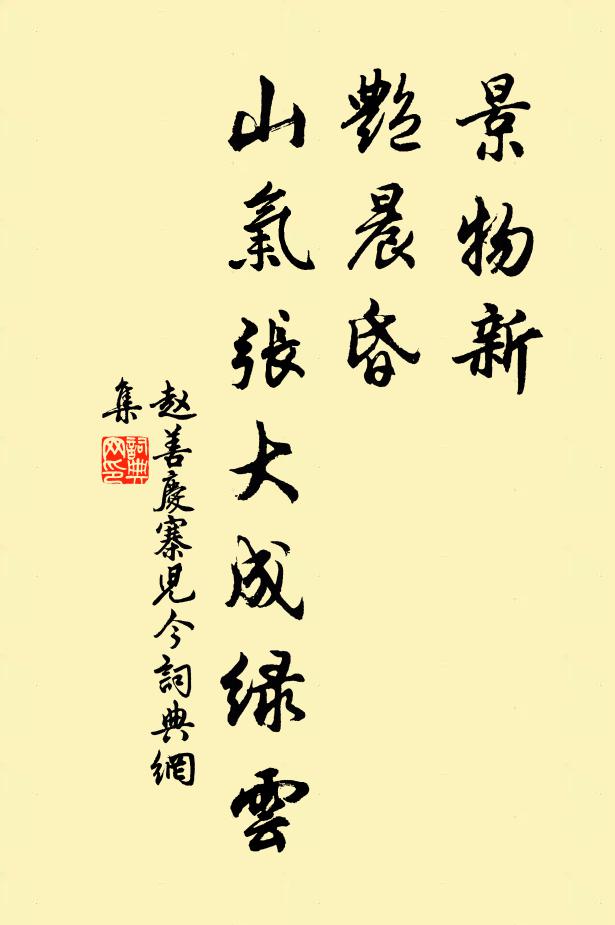 景物新
艷晨昏
山氣張大成绿雲
赵善慶寨児今詞典網
集
詞典
网印